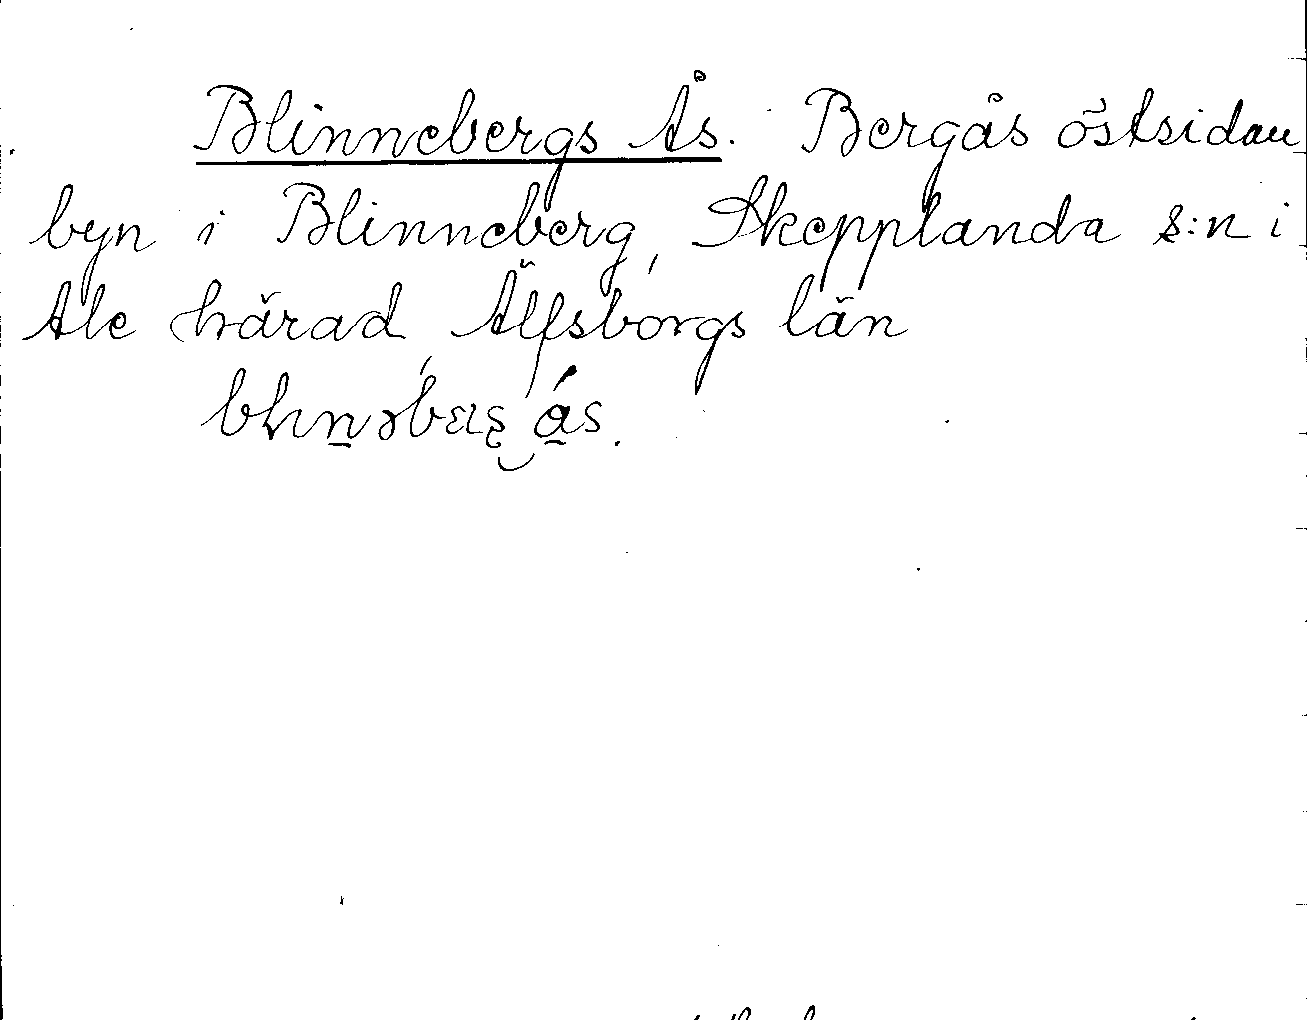 Blinnebergs Ås. Bergås östsidan
byn i Blinneberg, Skepplanda s:n i
Ale härad, Älfsborgs län